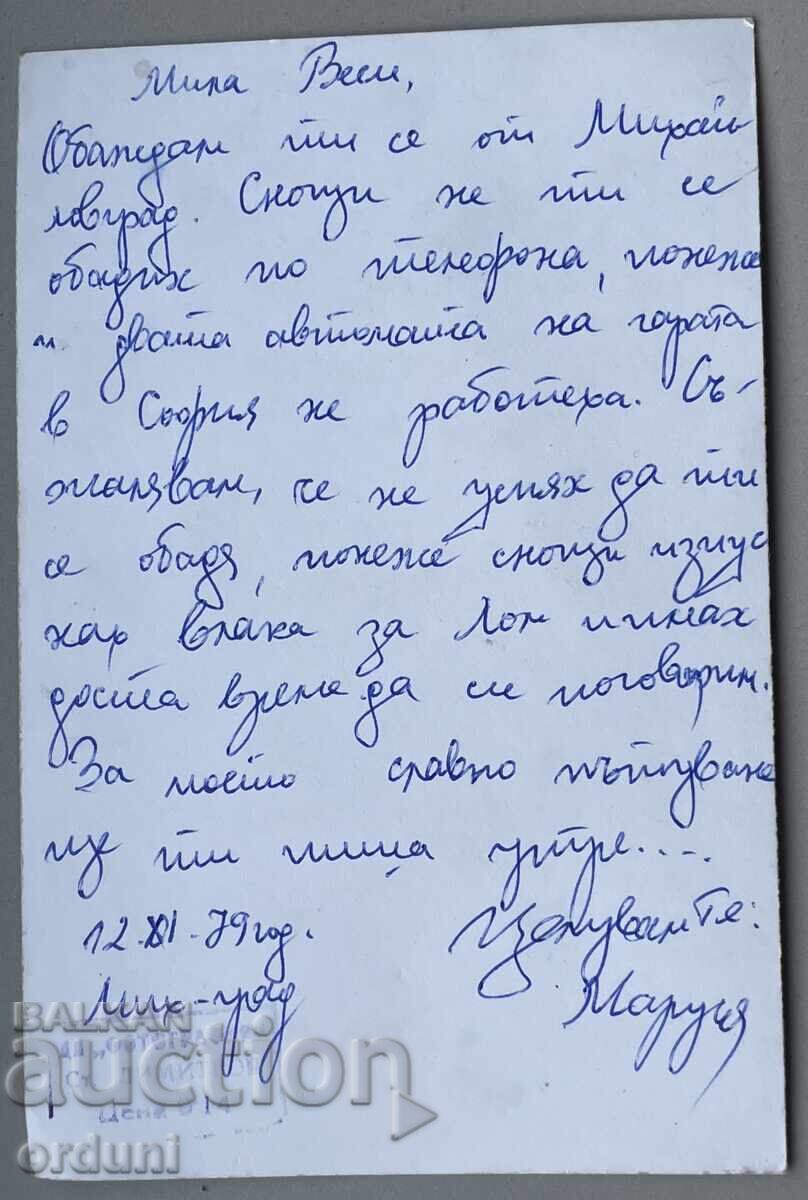 Мила Веси,
Обаждам ти се от Михай-
ловград. Снощи не ти се
обадих по телефона, понеже
и двата автомата на гарата
в София не работеха. Съ-
жалявам, че не успях да ти
се обадя, понеже снощи изпус
нах влака за Лом и имах
доста време да си поговорим.
За моето славно пътуване
ще ти пиша утре....
12.XI.79 год. Целувам те:
Мих-град Маруся
BALKAN
auction
Цена 0 14
orduni